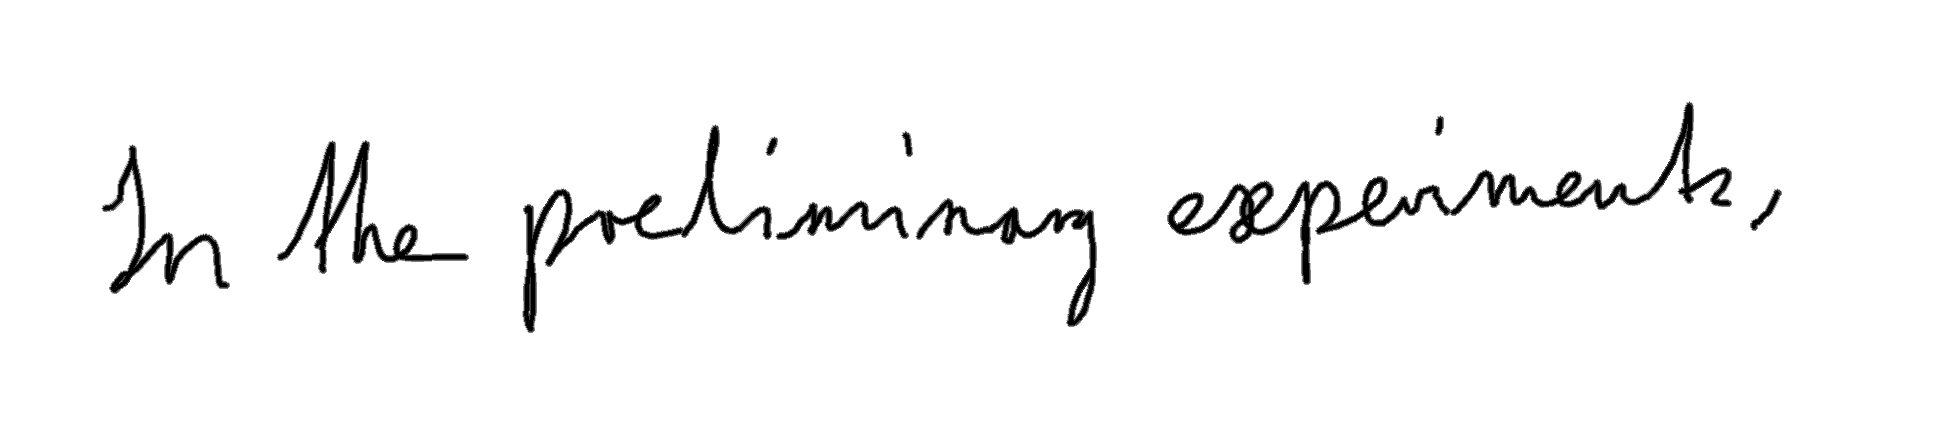 In the preliminary experiments,